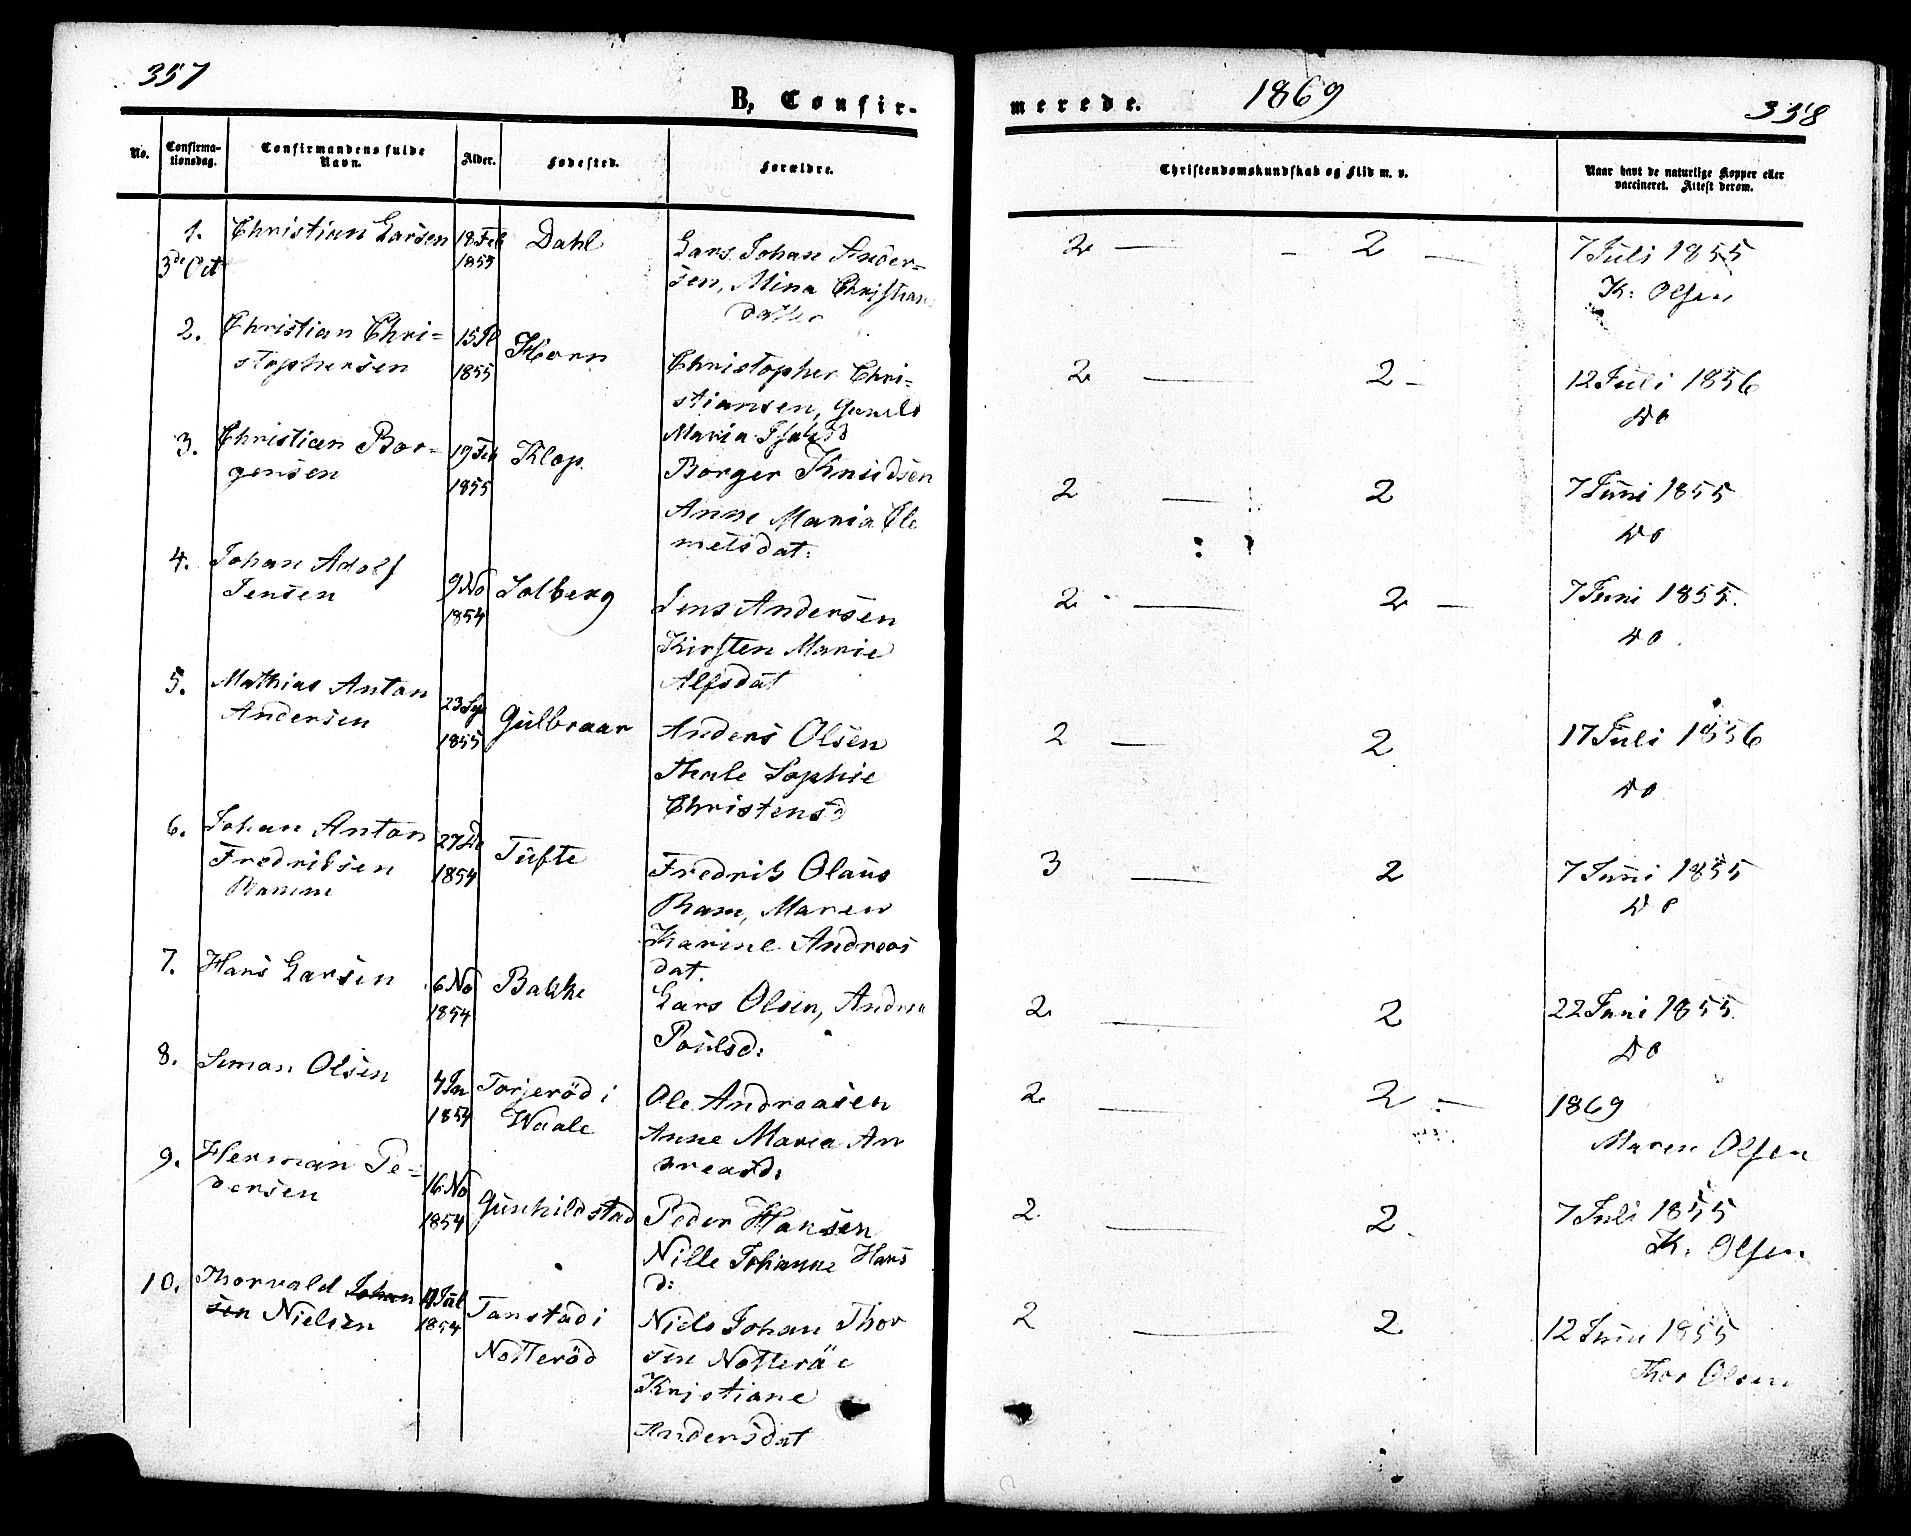 357
B, Confir-
No.
Confirma-
tionsdag.
Confirmandens fulde
Navn.
Alder.
Fødested.
Forældre.
1.
3de Oct
Christian Larsen
18 Feb
1855
Dahl
Lars Johan Ander-
sen, Mina Christian
datter
2.
Christian Chri-
stophersen
15
1855
Horn
Christopher Chri-
stiansen,
Maria
3.
Christian Bor-
gersen
19 Feb
1855
Klop
Borger Knudsen
Anne Maria Cle
metsdat:
4.
Johan Adolf
Jensen
9 No
1854
Solberg
Jens Andersen
Kirsten Marie
Alfsdat
5.
Mathias Anton
Andersen
23 Sep
1855
Gulbraar
Anders Olsen
Thale Sophie
Christensd
6.
Johan Anton
Fredriksen
Ramm
27 De
1854
Tufte
Fredrik Olaus
Ram, Maren
Karine Andreas
dat.
7.
Hans Larsen
6 No
1854
Bakke
Lars Olsen, Andrea
Poulsd:
8.
Simon Olsen
1854
Torjeröd i
Waale
Ole Andreasen
Anne Maria An
dreasd:
9.
Herman Pe-
dersen
16 No
1854
Gunhildstad
Peder Hansen
Nille Johanne Hans
d:
10.
Thorvald Johan
sen Nielsen
1854
Tanstad i
Notteröd
Niels Johan Thor
sen Notteröe
Kristiane
Andersdat
merede.
1869
358
Christendomskundskab og Flid m. v.
Naar havt de naturlige Kopper eller
vaccineret. Attest derom.
2 — - 2 —
7 Juli 1855
K: Olsen
2 — 2 -
12 Juli 1856
do
2 — 2
7 Juni 1855
do
2 — 2 —
7 Juni 1855.
do.
2 — 2
17 Juli 1856
do
3 — 2
7 Juni 1855
do
2 — 2
22 Juni 1855
do
2 — 2 —
1869
Maren Olsen
2 — 2.
7 Juli 1855
K. Olsen
2 — 2
12 Juni 1855
Thor Olsen